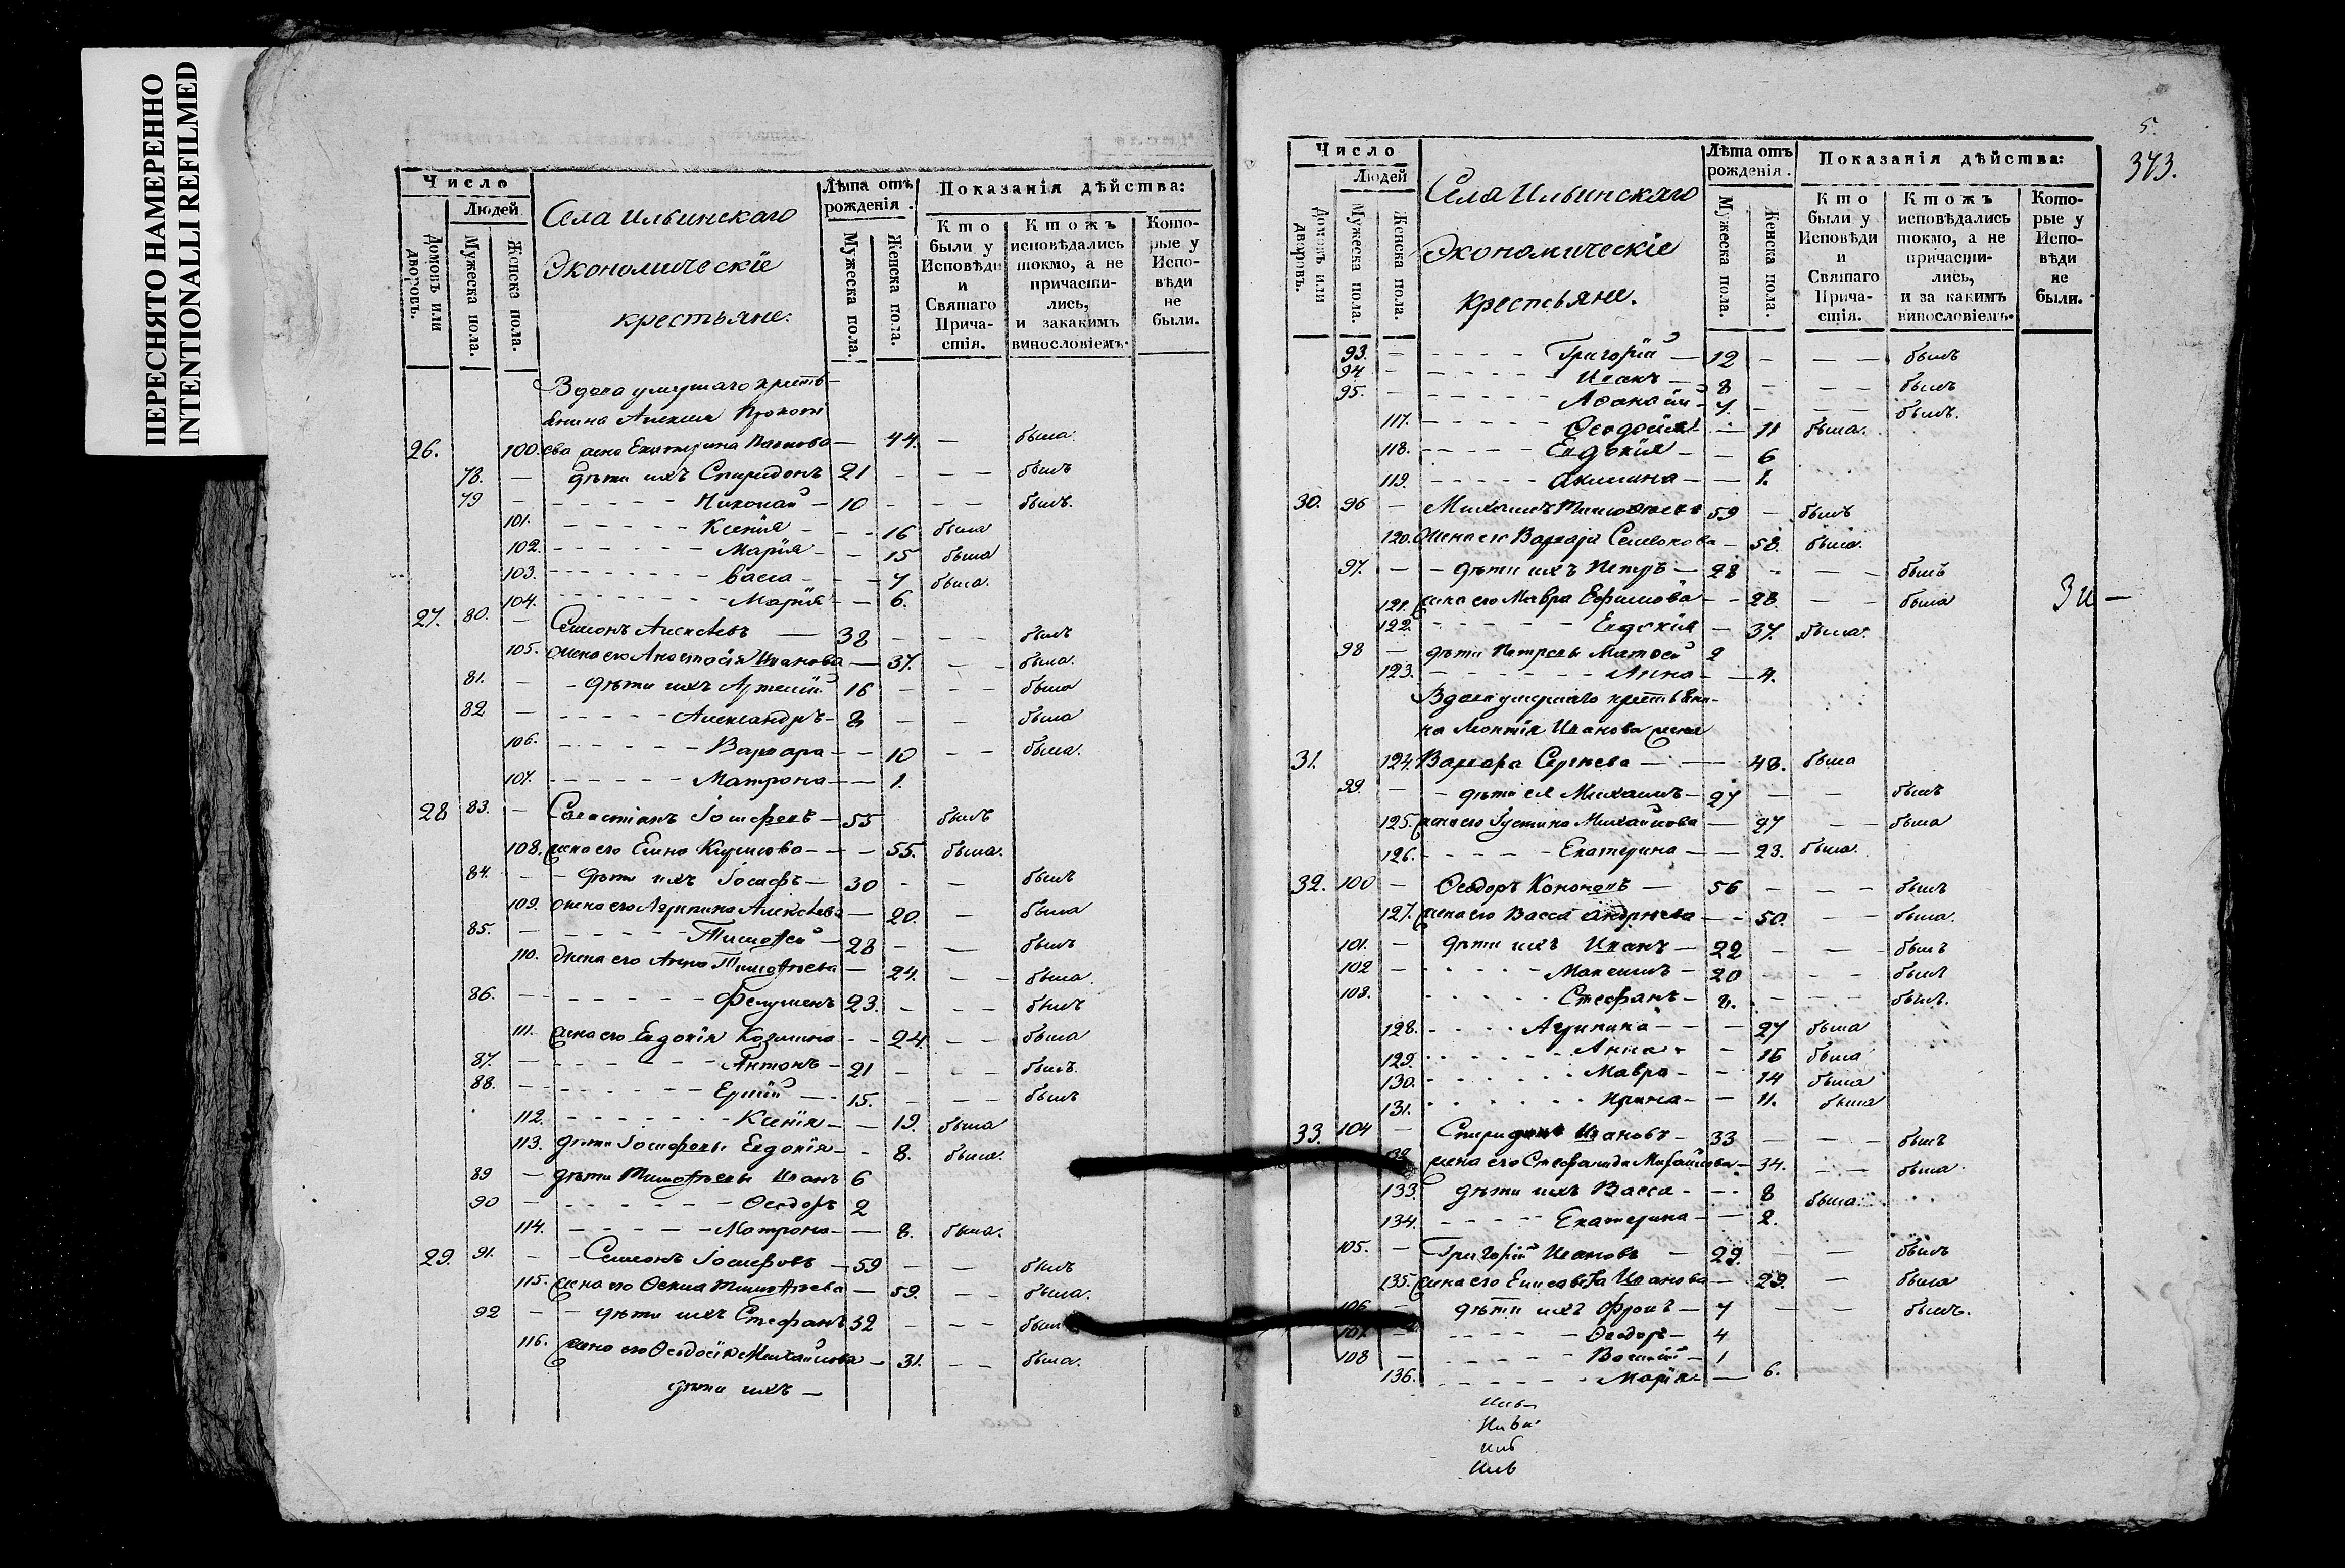 ПЕРЕСНЯТО НАМЕРЕННО
INTENTIONALLI REFILMED
Число
Людей
Домовъ или дворовъ.
Мужеска пола.
Женска пола.
Села Ильинскаго
Экономическіе
крестьяне.
Лѣта отъ рожденія.
Мужеска пола.
Женска пола.
Показанія дѣйства:
Кто были у Исповѣди и Святаго Причастія.
Ктожъ исповѣдались токмо, а не причастились, и закакимъ винословіемъ.
Которые у Исповѣди не были.
Вдова умершаго кресть-
янина Алексея Прокопі
26. 100. ева жена Екатерина Павлова — 44. — была.
78. — дѣти ихъ Спиридонъ 21 — — — былъ
79 — Николай — 10 — — — былъ.
101. Ксенія — 16 была
102. Марія — 15 была
103. Васса — 7 была.
104. Марія — 6.
27. 80. — Симонъ Алексѣевъ — 38 — — — былъ
105. жена его Анастасія Иванова — 37. — — была.
81. — дѣти ихъ Артемій 16 — — — была
82 — Александръ — 8 — — была
106. Варвара — 10 — — была.
107. Матрона — 1.
28 83. — Савастіанъ Іосифовъ — 55 былъ
108. жена его Елена Кирилова — 55. была.
84. — дѣти ихъ Іосифъ — 30 — — былъ
109. жена его Агрипина Алексѣева — 20. — была
85. — Тимофей — 28 — — былъ
110. жена его Анна Тимофѣева — 24. — — была.
86. — Филимонъ 23. — — былъ
111. жена его Евдокія Козмина — 24. — — была
87. — Антонъ — 21 — — — былъ.
88. — — 15. — — — былъ
112. Ксенія — 19. была
113. дѣти Іосифовы Евдокія — 8. была.
89 — дѣти Тимофѣевы Иванъ 6
90 — Ѳеодоръ 2
114. Матрона — 8. была.
29. 91. — Симонъ Іосифовъ — 59 — — былъ
115. жена его Тимофѣева — 59. — — была.
92 — дѣти ихъ Стефанъ 32 — — — былъ
116. жена его Ѳеодосія Михайлова — 31. — — была.
дѣти ихъ —
5.
373.
Число
Людей
Домовъ или дворовъ.
Мужеска пола.
Женска пола.
Села Ильинскаго
Экономическіе
крестьяне.
Лѣта отъ рожденія.
Мужеска пола.
Женска пола.
Показанія дѣйства:
Кто были у Исповѣди и Святаго Причастія.
Ктожъ исповѣдались токмо, а не причастились, и за какимъ винословіемъ.
Которые у Исповѣди не были.
93. — Григорій — 12 — — — былъ
94 — Иванъ — 8 — — — былъ
95. — Аѳанасій — 7. — — — былъ.
117. Ѳеодосія — 11 была.
118. Евдокія — 6
119. Акилина — 1.
30. 96 — Михаилъ Тимоѳеевъ 59 — былъ
120. Жена его Варвара Симонова — 58. была.
97. — дѣти ихъ Петръ — 28 — — — былъ
121. жена его Мавра Ефимова — 28. — — была
122. Евдокія — 37. была.
98 — дѣти Петровы Матѳей 2
123. Анна — 4.
Вдова умершаго крестьяни-
на Леонтія Иванова жена
31. 124. Варвара Сергеева — 48. была
99. — дѣти ея Михаилъ — 27 — — былъ
125. жена его Іустина Михайлова — 27 — — была
126. Екатерина — 23. была.
32. 100 — Ѳеодоръ Кононовъ — 56 — — — былъ
127. жена его Васса Андреева — 50. — — была.
101. — дѣти ихъ Иванъ — 22 — — — былъ
102 — Максимъ — 20 — — — былъ
103. Стефанъ — 8. — — — былъ.
128. Агрипина — 27 была
129. Анна — 16 была
130. Мавра — 14 была
131. Ирина — 11. была
33. 104 — Спиридонъ Ивановъ — 33 — — — былъ
жена его Стефанида Михайлова — 34. — — была.
133. дѣти ихъ Васса — 8 была.
134. Екатерина — 2.
105. — Григорій Ивановъ — 29. — — былъ
135. жена его Елисавета Иванова — 29. — была
106. — дѣти ихъ Фролъ — 7 — — былъ.
107. — Ѳеодоръ — 4
108 — Василій — 1
136. Марія — 6.